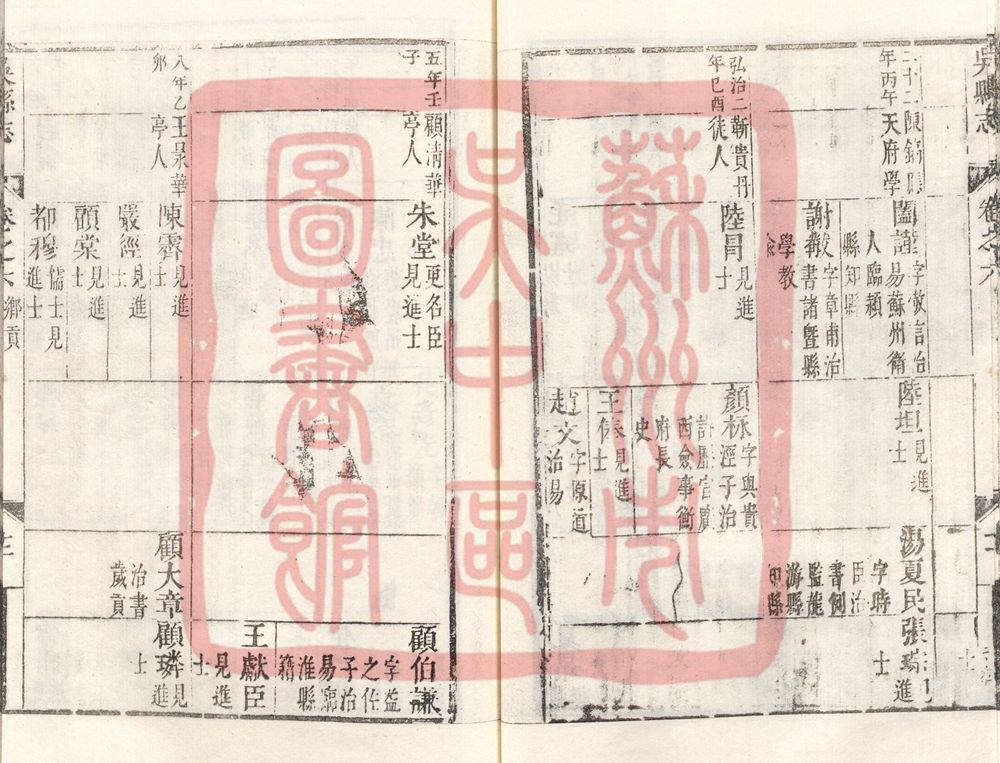 吳縣志
卷之六
二十二
年丙午
陳鎬應
天府學
闔謹
字敬言治
易蘇州衛
人臨潁
縣知縣
謝
字章甫治
書諸暨縣
學教
諭
陸坦
見進
士
湯夏民
字時
臣治
書例
監龍
游縣
知縣
張
見
進
士
弘治二
年己酉
靳貴丹
徒人
陸冐
見進
士
顏
字與貴
涇子治
西僉事衛
府長
史
王俸
見進
士
趙文
字原道
治易
五年壬
子
顧清華
亭人
朱堂
更名臣
見進士
顧伯謙
字益
之佐
子治
易
淮縣
籍
王獻臣
見進
士
八年乙
卯
王㫤華
亭人
陳霽
見進
士
嚴經
見進
士
顧棠
見進
士
都穆
儒士見
進士
顧大章
治書
歲貢
顧璘
見進
士
吳縣志
卷之六
鄉貢
蘇州市
吳中區
圖書館